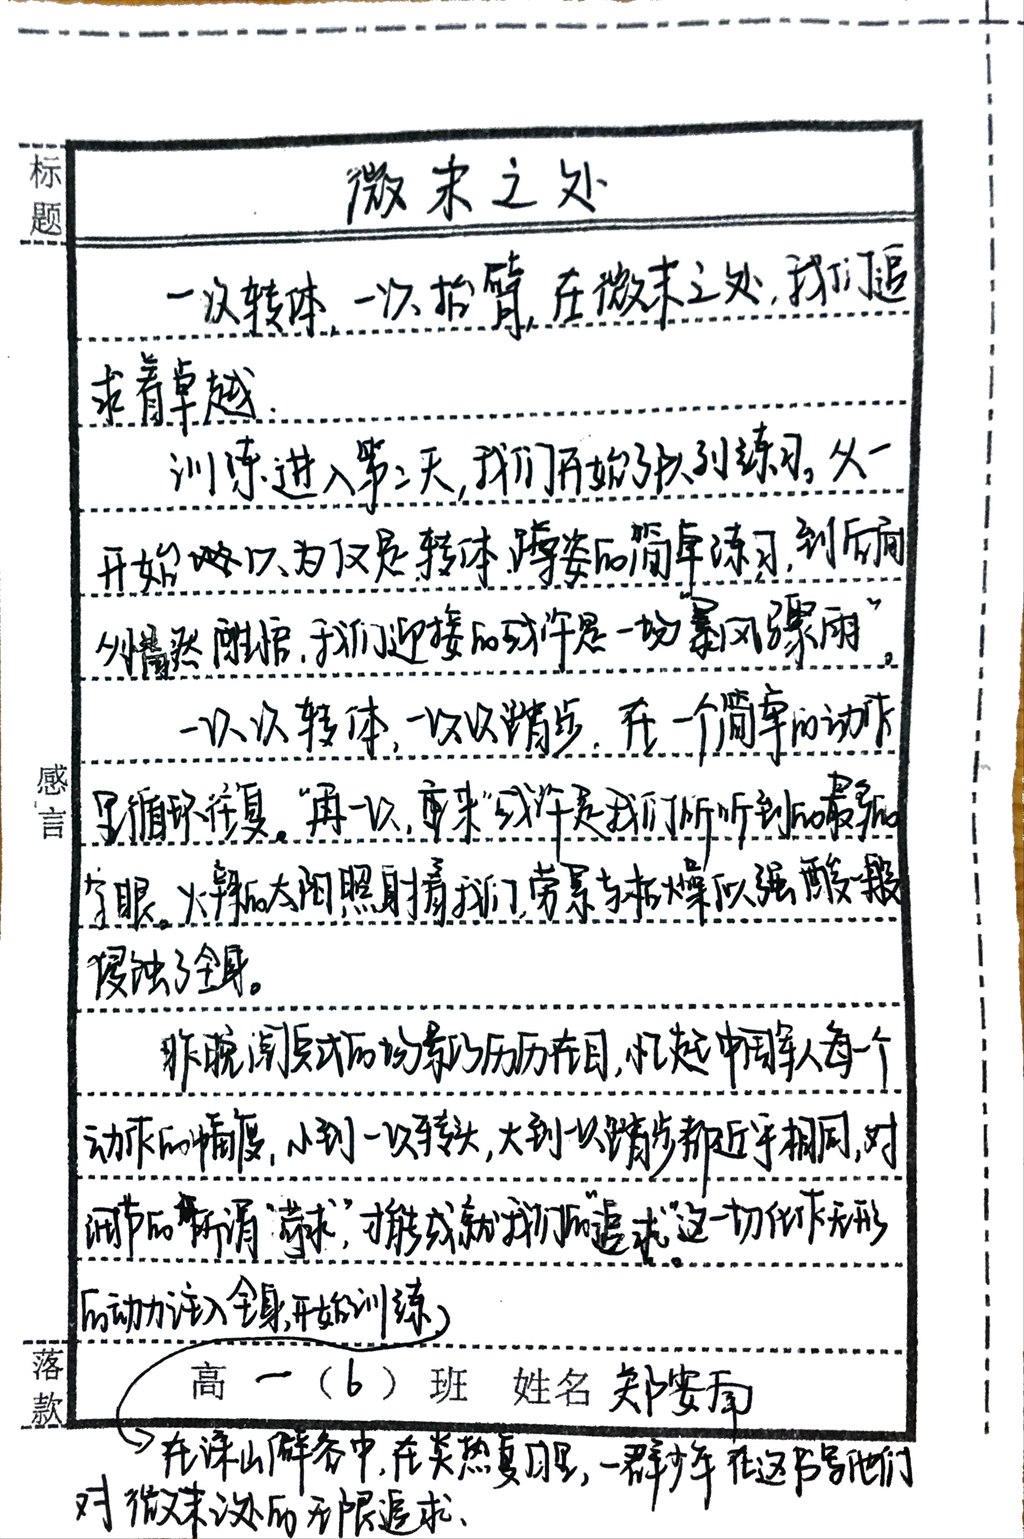 标题
微末之处
一次转体，一次抬臂，在微末之处，我们追
求着卓越.
训练进入第二天，我们开始了队列练习。从一
开始以为仅是转体蹲姿的简单练习，到后面
恍然醒悟，我们迎接的或许是一场“暴风骤雨”。
一次次转体，一次次踏步. 在一个简单的动作
里循环往复。“再一次，重来”或许是我们所听到的最多的
字眼。火辣的太阳照射着我们，劳累与枯燥似强酸一般
侵蚀了全身。
感言
昨晚阅兵式的场景仍历历在目，忆起中国军人每一个
动作的幅度，小到一次转头，大到一次踏步都近乎相同，对
细节的所谓“苛求”，才能成就我们的“追求”。这一切化作无形
的动力注入全身，开始训练，
落款
高一（6）班 姓名 郑安
在深山僻谷中，在炎热夏日里，一群少年在这书写他们
对微末之处的无限追求.